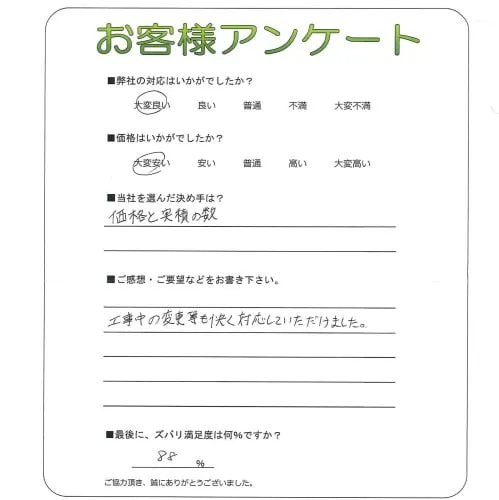 お客様アンケート
■弊社の対応はいかがでしたか？
大変良い 良い 普通 不満 大変不満
■価格はいかがでしたか？
大変安い 安い 普通 高い 大変高い
■当社を選んだ決め手は？
価格と実積の数
■ご感想・ご要望などをお書き下さい。
工事中の変更等も快く対応していただけました。
■最後に、ズバリ満足度は何％ですか？
88 %
ご協力頂き、誠にありがとうございました。